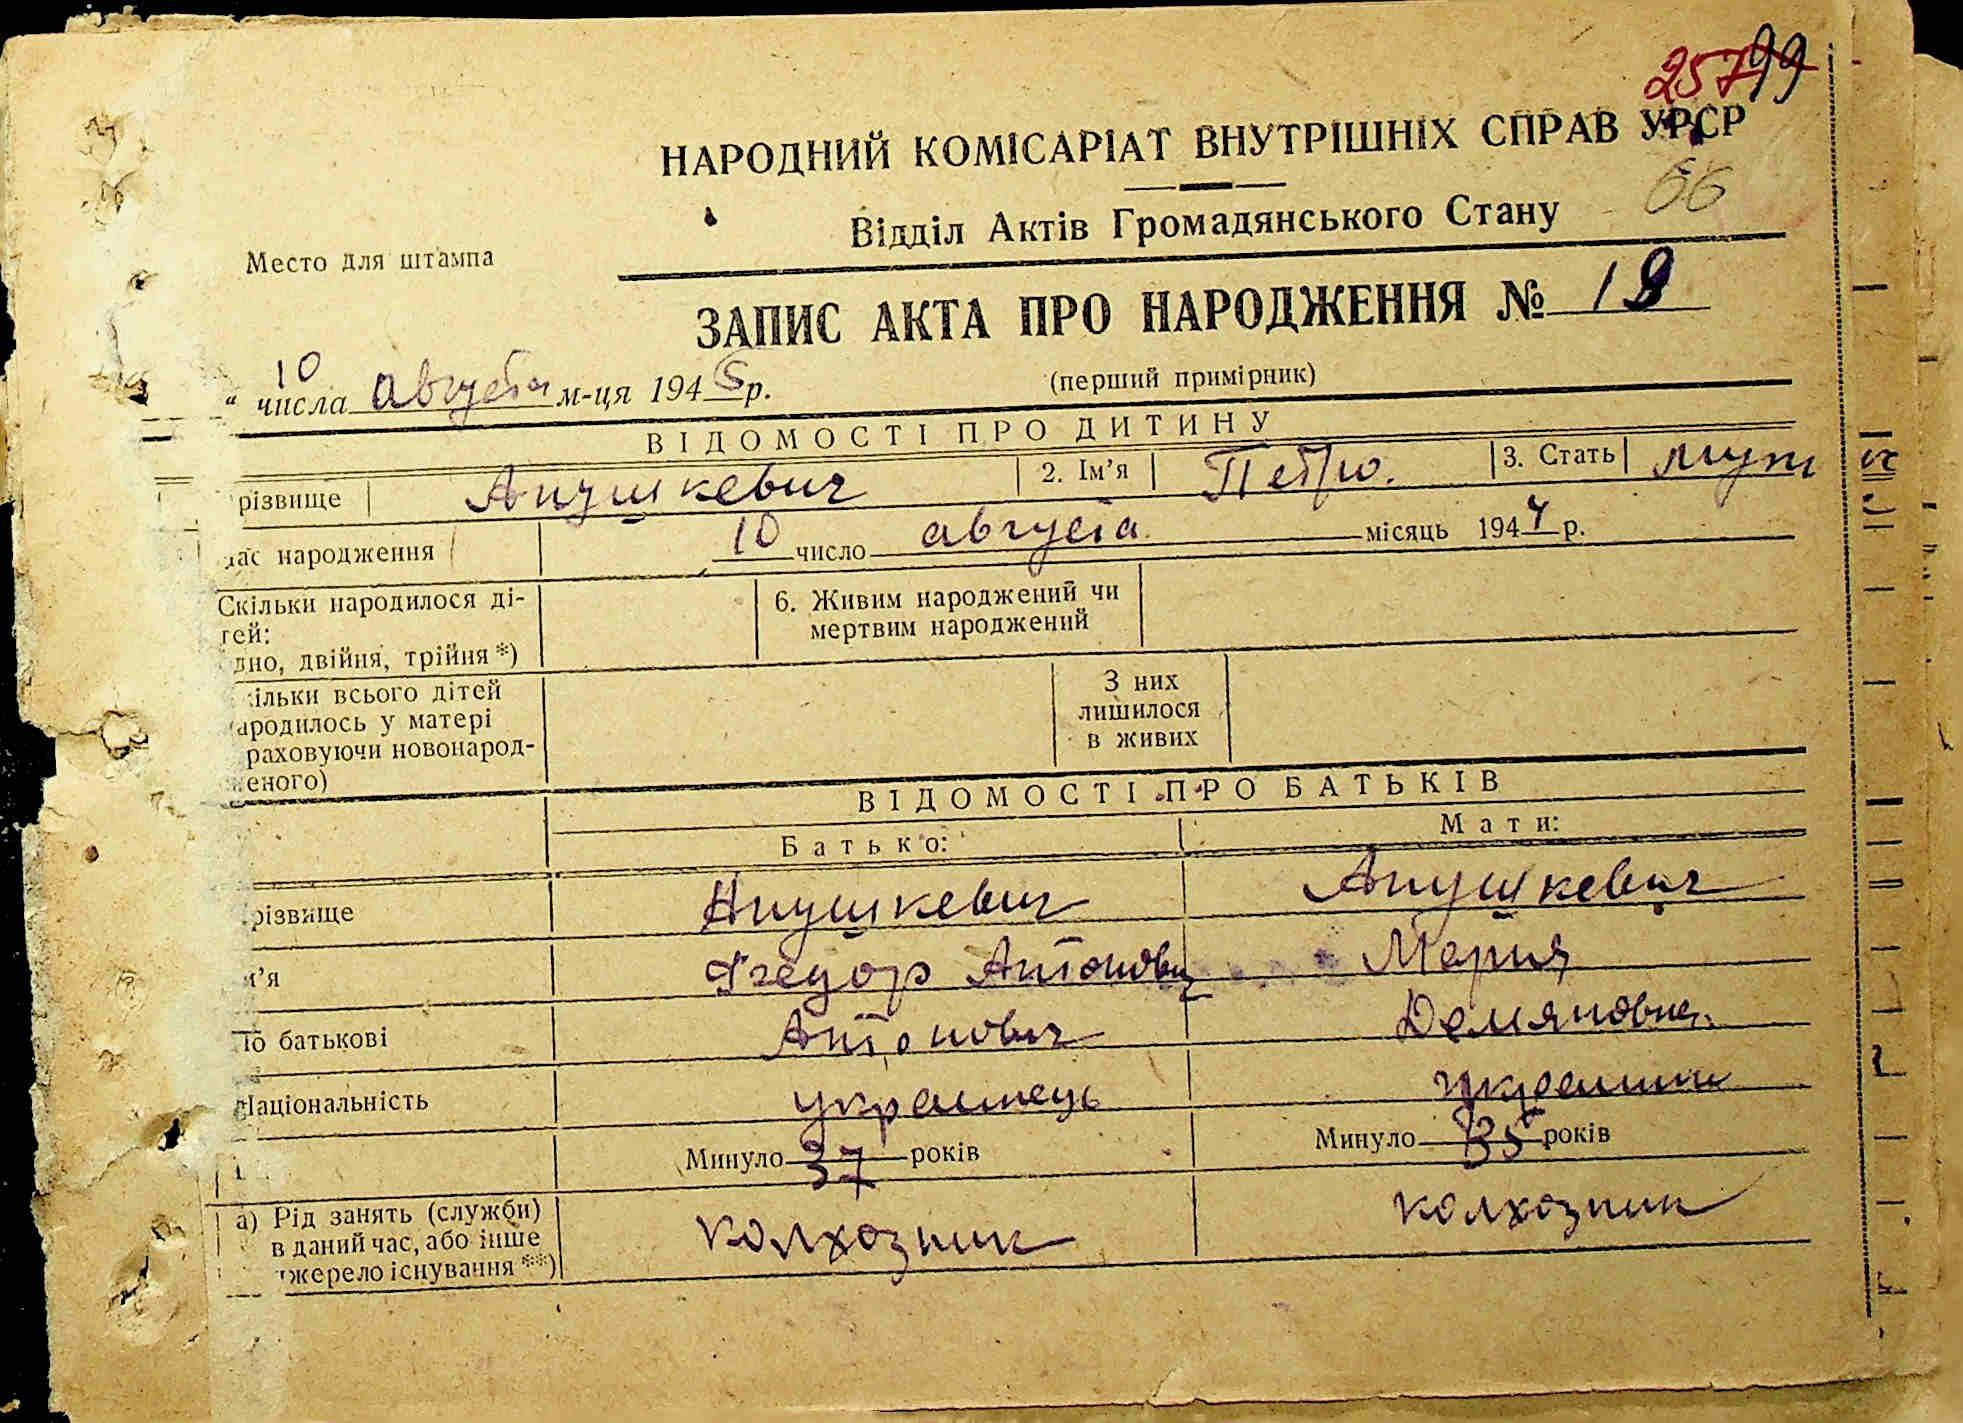 99
НАРОДНИЙ КОМІСАРІАТ ВНУТРІШНІХ СПРАВ УРСР
66
Відділ Актів Громадянського Стану
Место для штампа
ЗАПИС АКТА ПРО НАРОДЖЕННЯ № 18
(перший примірник)
" 10 числа августа м-ця 1945 р.
ВІДОМОСТІ ПРО ДИТИНУ
різвище Апушкевич 2. Ім'я Петро. 3. Стать муж
ас народження 10 число августа місяць 1944 р.
Скільки народилося ді-
тей:
дно, двійня, трійня*)
6. Живим народжений чи
мертвим народжений
ільки всього дітей
ародилось у матері
раховуючи новонарод-
еного)
З них
лишилося
в живих
ВІДОМОСТІ ПРО БАТЬКІВ
Батько: Мати:
різвище Апушкевич Апушкевич
м'я Фёдор Антонович Мария
По батькові Антонович Демяновна
Національність украинець
Минуло 37 років Минуло 35 років
а) Рід занять (служби)
в даний час, або інше
жерело існування **)
колхозник колхозник